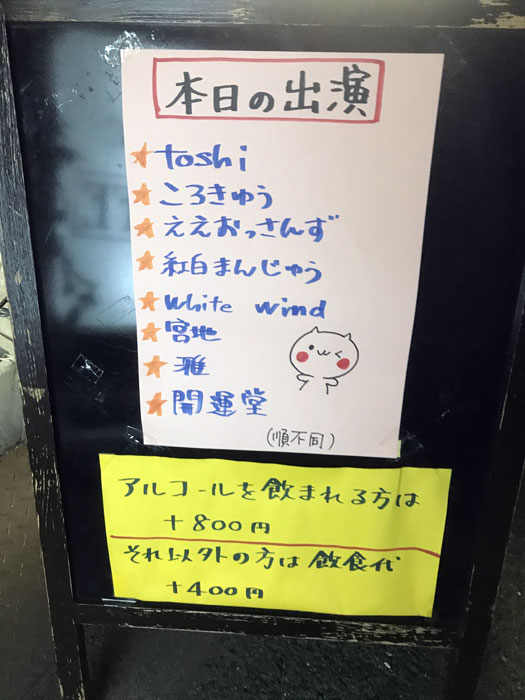 本日の出演
★toshi
★ころきゅう
★ええおっさんず
★紅白まんじゅう
★White wind
★宮地
★雅
★開運堂
(順不同)
アルコールを飲まれる方は
+800円
それ以外の方は飲食代
+400円